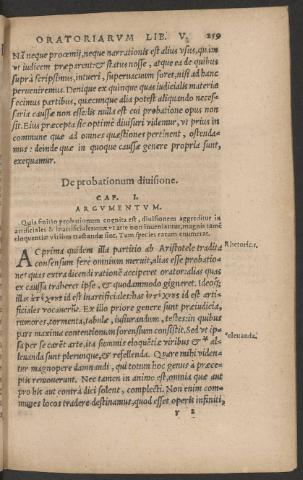 ORATORIARVM LIB. V. 259
Nā neque procemij, neque narrationis est alius vsus, quàm
vt iudicem præparent: & status nosse, atque ea de quibus
suprà scripsimus, intueri, superuacuum foret, nisi ad hanc
perueniremus. Denique ex quinque quas iudicialis materiæ
fecimus partibus, quæcunque alia potest aliquando necessaria
causæ non esse: lis nulla est cui probatione opus non
sit. Eius præcepta sic optimè diuisuri videmur, vt prius in
commune quæ ad omnes quæstiones pertinent, ostendamus:
deinde quæ in quoque causæ genere propria sunt,
exequamur.
De probationum diuisione.
CAP. I.
ARGVMENTVM.
Quia finitio probationum cognita est, diuisionem aggreditur in
artificiales & inartificiales: quæ
eloquentiæ viribus tractandæ sunt. Tum species earum enumerat.
AC prima quidem illa partitio ab Aristotele tradita
consensum ferè omnium meruit, alias esse probationes
quas extra dicendi rationē acciperet orator: alias quas
ex causa traheret ipse, & quodammodo gigneret. Ideoq;
illas id est inartificiales: has id est artificiales
vocauerūt. Ex illo priore genere sunt præiudicia,
rumores, tormenta, tabulæ, iusiurandum, testes: in quibus
pars maxima contentionum forensium consistit. Sed vt ipsa
per se carēt arte, ita summis eloquētiæ viribus & * alleuanda
sunt plerunque, & refellenda. Quare mihi videntur
magnopere damnandi, qui totum hoc genus à præceptis
remouerunt. Nec tamen in animo est, omnia quæ aut
pro his aut contrà dici solent, complecti. Non enim communes
locos tradere destinamus, quod esset operis infiniti,
y 2
Rhetorica.
*eleuanda.